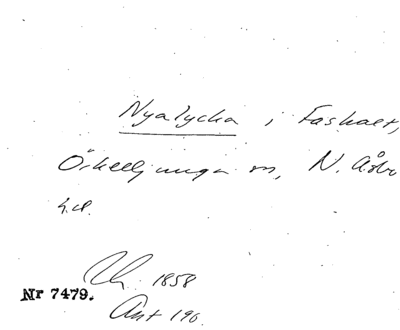 Nyalycka i Fashalt,
Örkelljunga sn, N. Åsbo
hd.
1858
Nr 7479.
Ant 196.